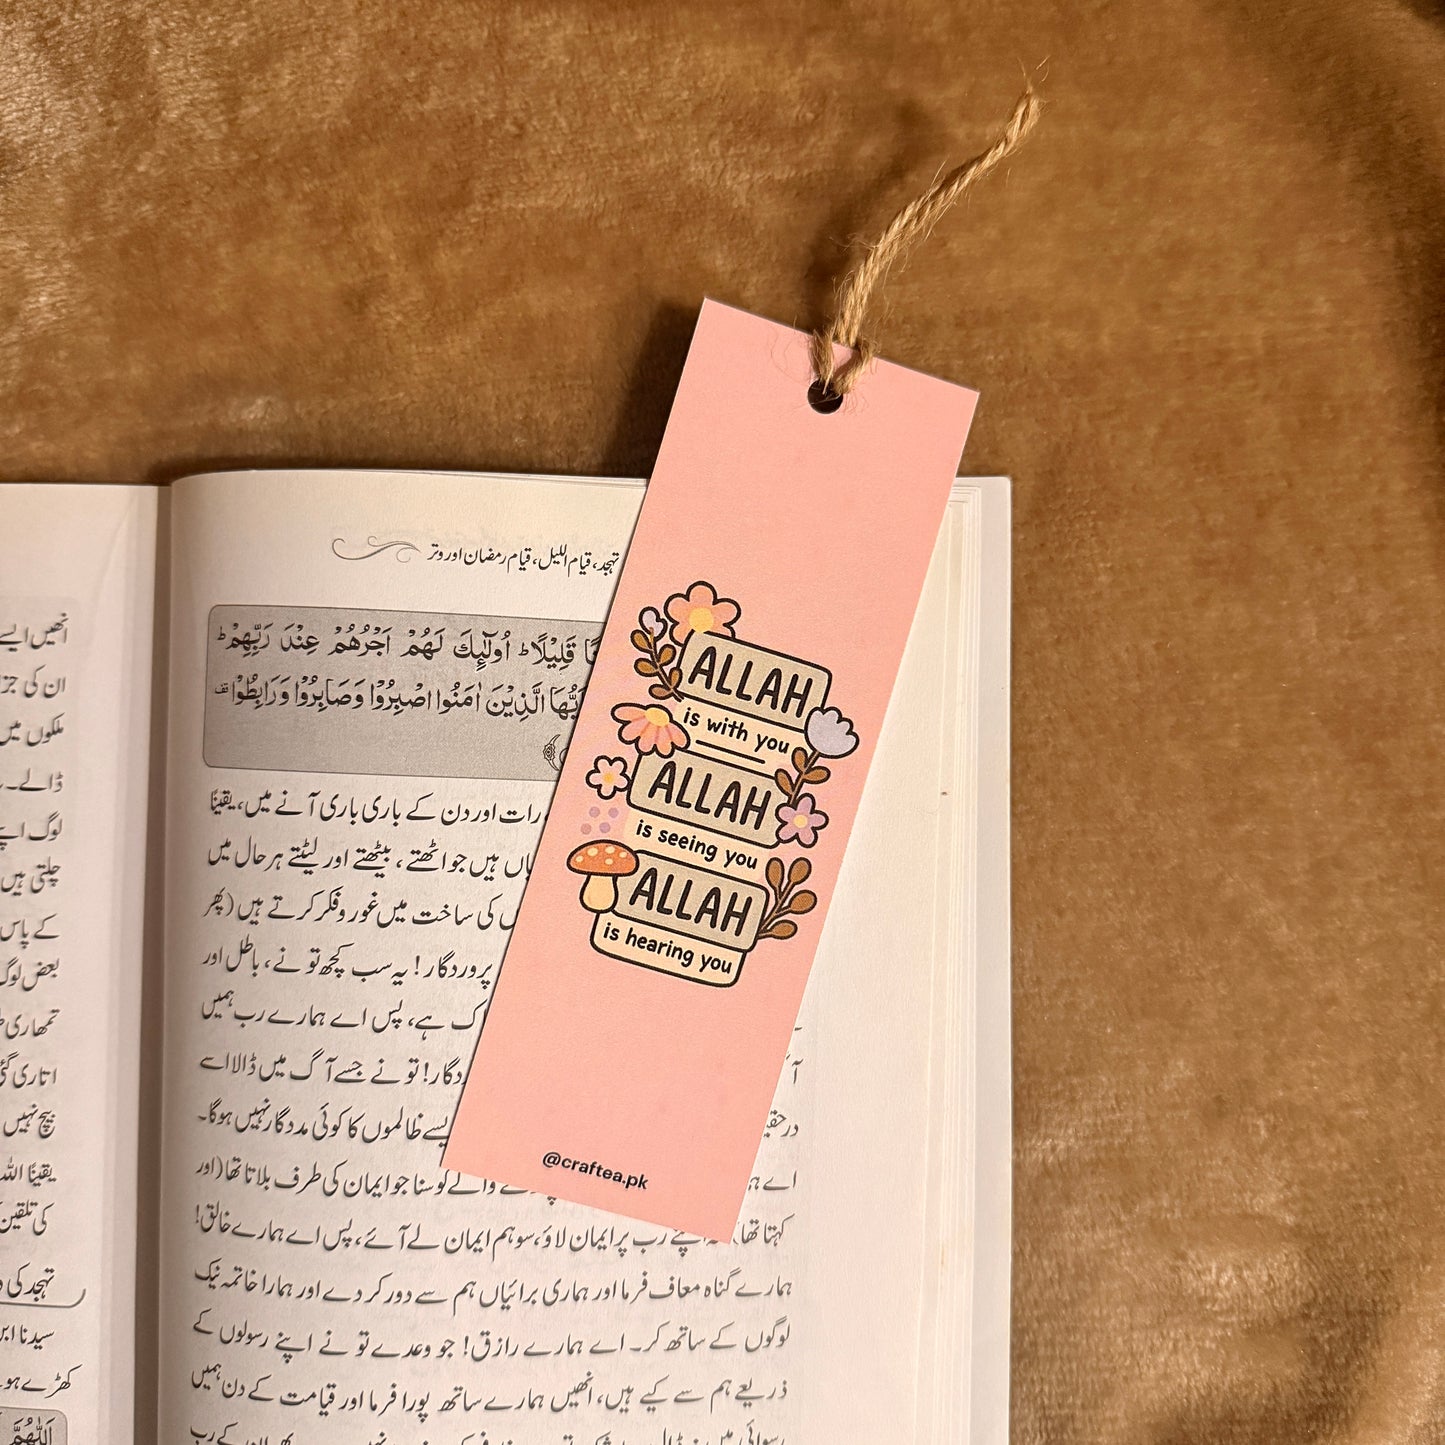 ALLAH
is with you
ALLAH
is seeing you
ALLAH
is hearing you
@craftea.pk
تہجد، قیام اللیل، قیام رمضان اور وتر
قَلِيْلًا ؕ اُولٰٓئِكَ لَهُمْ اَجْرُهُمْ عِنْدَ رَبِّهِمْ ؕ
الَّذِيْنَ اٰمَنُوا اصْبِرُوْا وَصَابِرُوْا وَرَابِطُوْا
رات اور دن کے باری باری آنے میں، یقینًا
ہیں جو اٹھتے، بیٹھتے اور لیٹتے ہر حال میں
کی ساخت میں غور و فکر کرتے ہیں (پھر
پروردگار! یہ سب کچھ تو نے، باطل اور
ہے، پس اے ہمارے رب ہمیں
تو نے جسے آگ میں ڈالا اسے
ظالموں کا کوئی مددگار نہیں ہوگا۔
اے
والے کو سنا جو ایمان کی طرف بلاتا تھا (اور
کہتا تھا)
رب پر ایمان لاؤ، سو ہم ایمان لے آئے، پس اے ہمارے خالق!
ہمارے گناہ معاف فرما اور ہماری برائیاں ہم سے دور کر دے اور ہمارا خاتمہ نیک
لوگوں کے ساتھ کر۔ اے ہمارے رازق! جو وعدے تو نے اپنے رسولوں کے
ذریعے ہم سے کیے ہیں، انھیں ہمارے ساتھ پورا فرما اور قیامت کے دن ہمیں
انھیں ایسے
ان کی
ملکوں میں
ڈالے۔
لوگ
چلتی ہیں
کے پاس
بعض لوگ
تمھاری
اتاری گئی
نہیں
یقینًا اللہ
کی تلقین
تہجد کی
سیدنا
کھڑے
اَللّٰهُمَّ